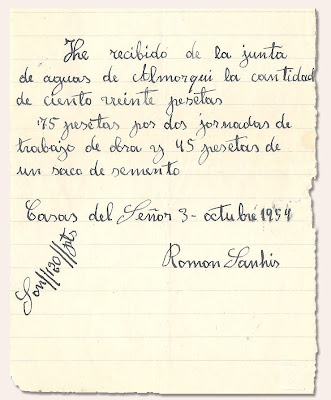 He recibido de la junta
de aguas de Almorqui la cantidad
de ciento vreinte pesetas
75 pesetas por dos jornadas de
trabajo de obra y 45 pesetas de
un saco de semento
Casas del Señor 3- octubre 1954
Son//120//pts
Ramon Sanhis